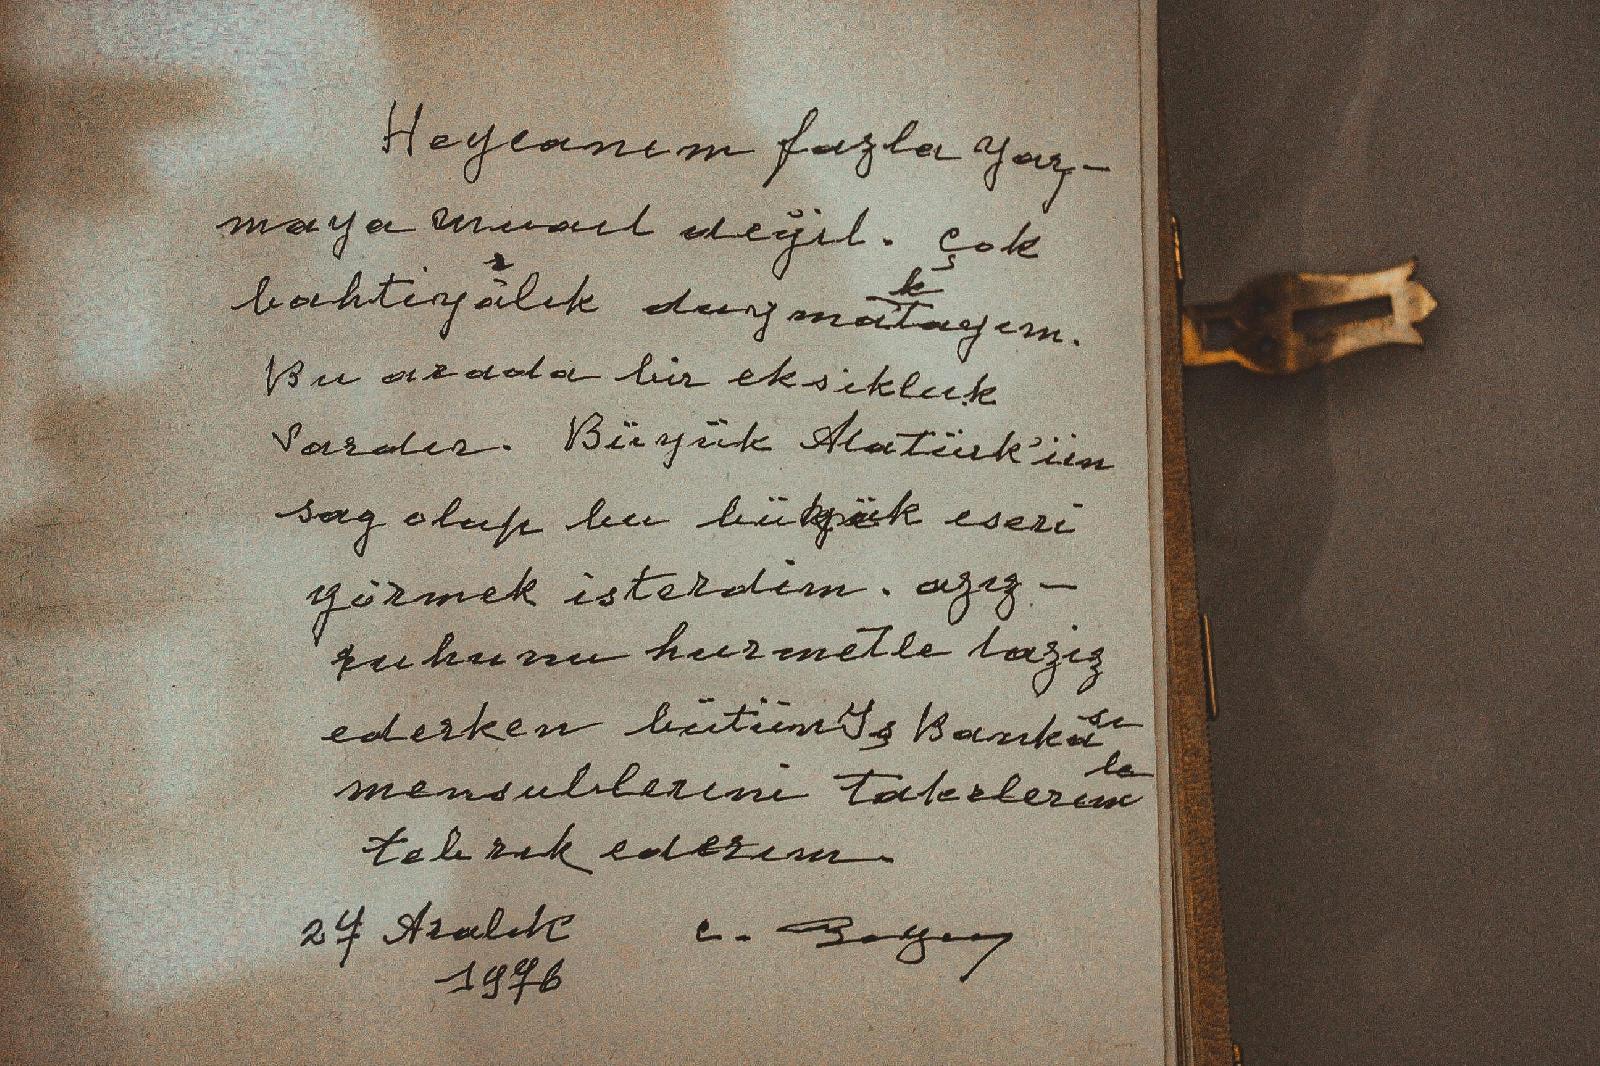 Heycanım fazla yaz-
maya muail değil. Çok
bahtiyarlık duymaktayım.
Bu arada bir eksikluk
vardır. Büyük Atatürk'ün
sag olup bu büyük eseri
görmek isterdim. aziz-
ruhunu hurmetle taziz
ederken bütün İş Bankası
mensublerini takrlerimle
tebrik ederım.
27 Aralık C. Bayar
1976